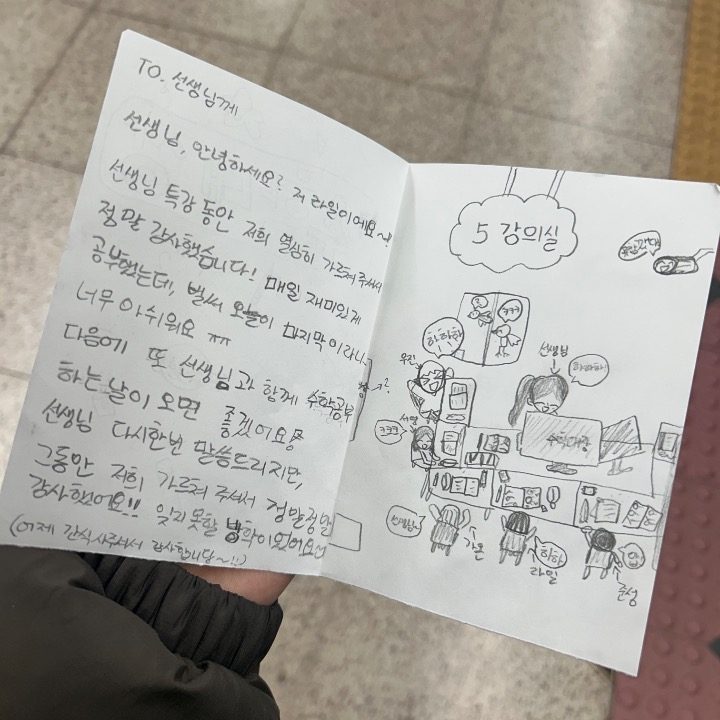 TO. 선생님께
선생님, 안녕하세요? 저 라일이에요~!!
선생님 특강 동안 저희 열심히 가르쳐 주셔서
정말 감사했습니다! 매일 재미있게
공부했는데, 벌써 오늘이 마지막이라니
너무 아쉬워요 ㅠㅠ
다음에 또 선생님과 함께 수학공부
하는 날이 오면 좋겠어요
선생님 다시한번 말씀드리지만,
그동안 저희 가르쳐 주셔서 정말정말
감사했어요!! 잊지못할 방학이었어요
(어제 간식사주셔서 감사합니당~!!)
5 강의실
ㅋㅋㅋ
하하하
우진
선생님
하하하!
ㅋㅋㅋ
수학대장
가온
하하
라일
준성